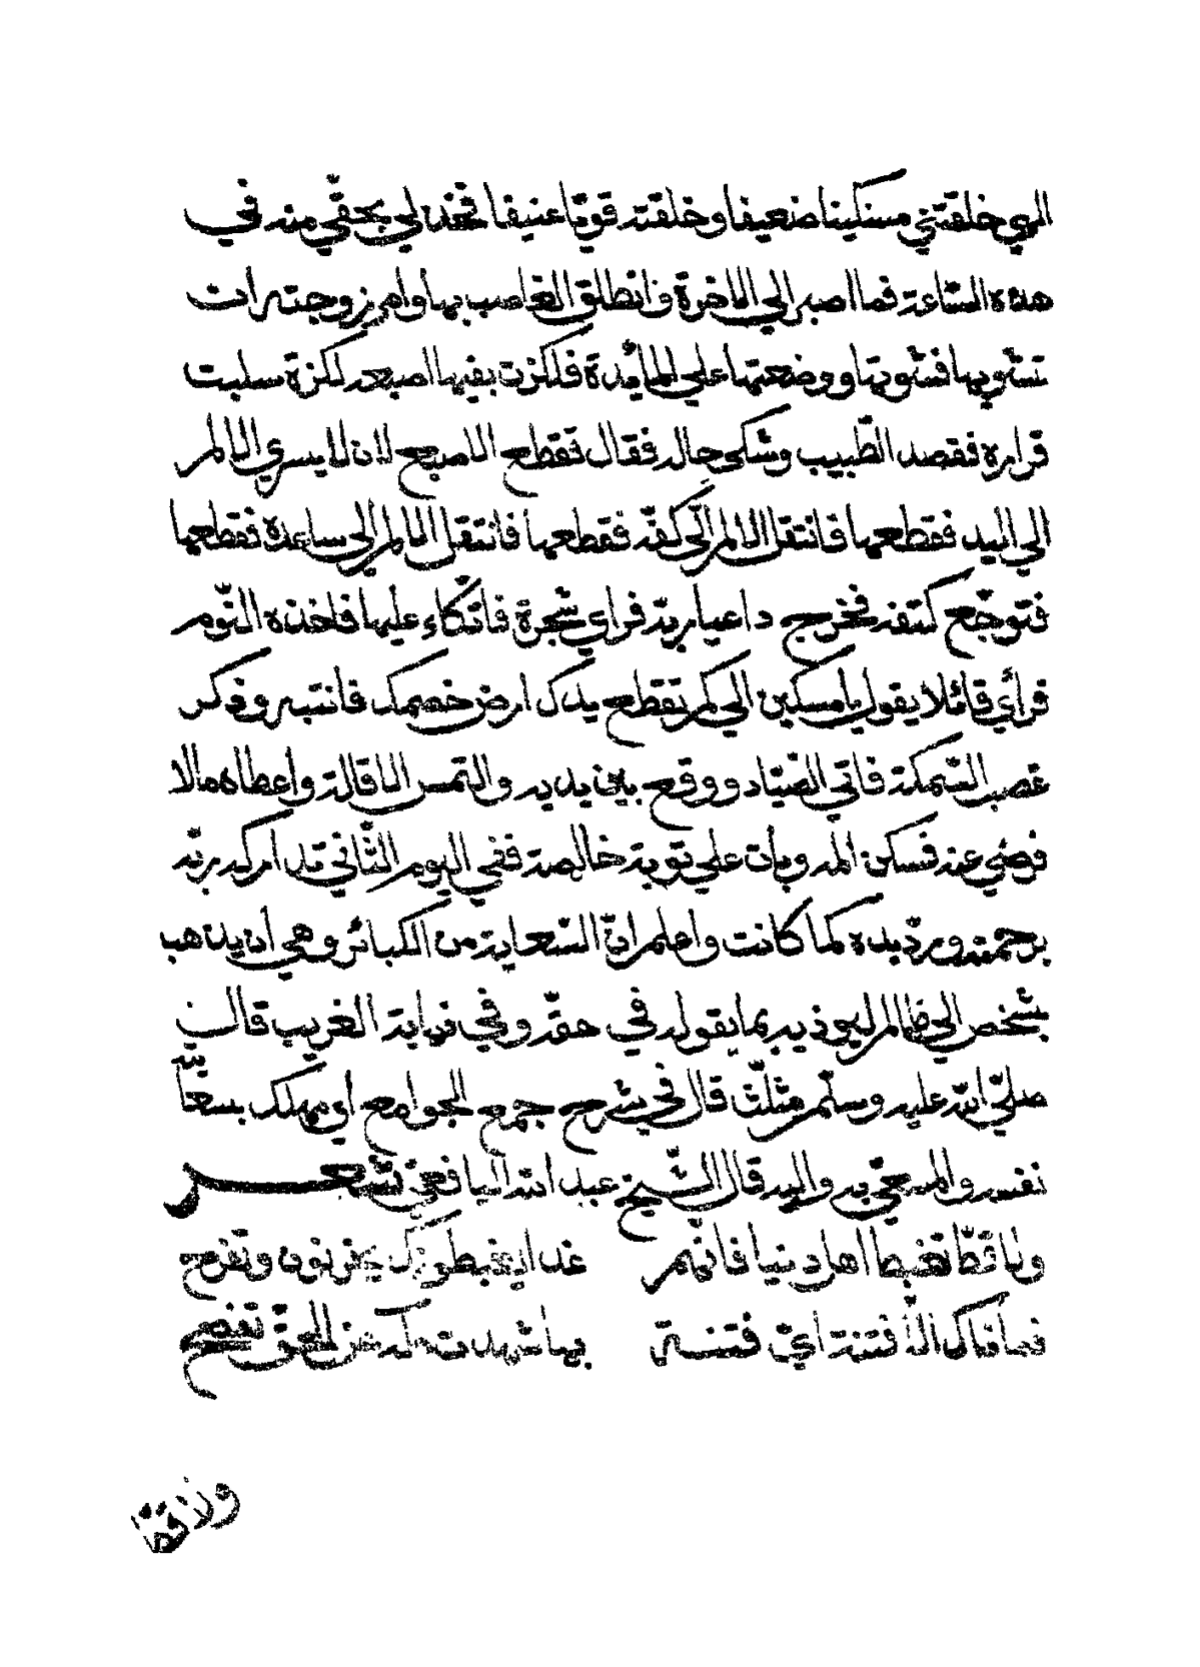 الهي خلقتني مسكينا ضعيفا وخلقته قويّا عنيفا فخذ لي بحقّي منه في
هذه السّاعة فما اصبر الي الاخرة وانطلق الغاصب بها وامر زوجته ان
تشويها فشوتها ووضعتها علي المأيدة فلكزت بفيها اصبعه لكزة سلبت
قراره فقصد الطّبيب وشكى حاله فقال تقطع الاصبع لان لا يسري الالم
الي اليد فقطعها فانتقل الالم الّي كفّه فقطعها فانتقل الالم الي ساعده فقطعها
فتوجّع كتفه فخرج داعيا ربّه فراي شجرة فاتّكاء عليها فاخذه النّوم
فرأي قائلا يقول يا مسكين الي كم تقطع يدك ارض خصمك فانتبه وذكر
غصب السّمكة فاتي الصّيّاد ووقع بين يديه والتمس الاقالة واعطاه مالا
فرضي عنه فسكن المه وبات علي توبة خالصة ففي اليوم الثّاني تداركه ربّه
برحمته وردّ يده كما كانت واعلم انّ السّعاية من الكبائر وهي أن يذهب
بشخص الي ظالم ليوذيه بما يقوله في حقّه وفي نهاية الغريب قال
صلّي الله عليه وسلّم مثلّث قال في شرح جمع الجوامع أي مهلك بسعا يته
نفسه والمسعيّ به واليه قال الشّيخ عبد الله اليافعيّ شعر
ولا قطّ تغبط اهل دنيا فانّهم غدا يغبطونك يحزنون وتفرح
فما ذاك الّا فتنة ايّ فتنة بها شهدت من الحقّ تفصح
ولا قطّ